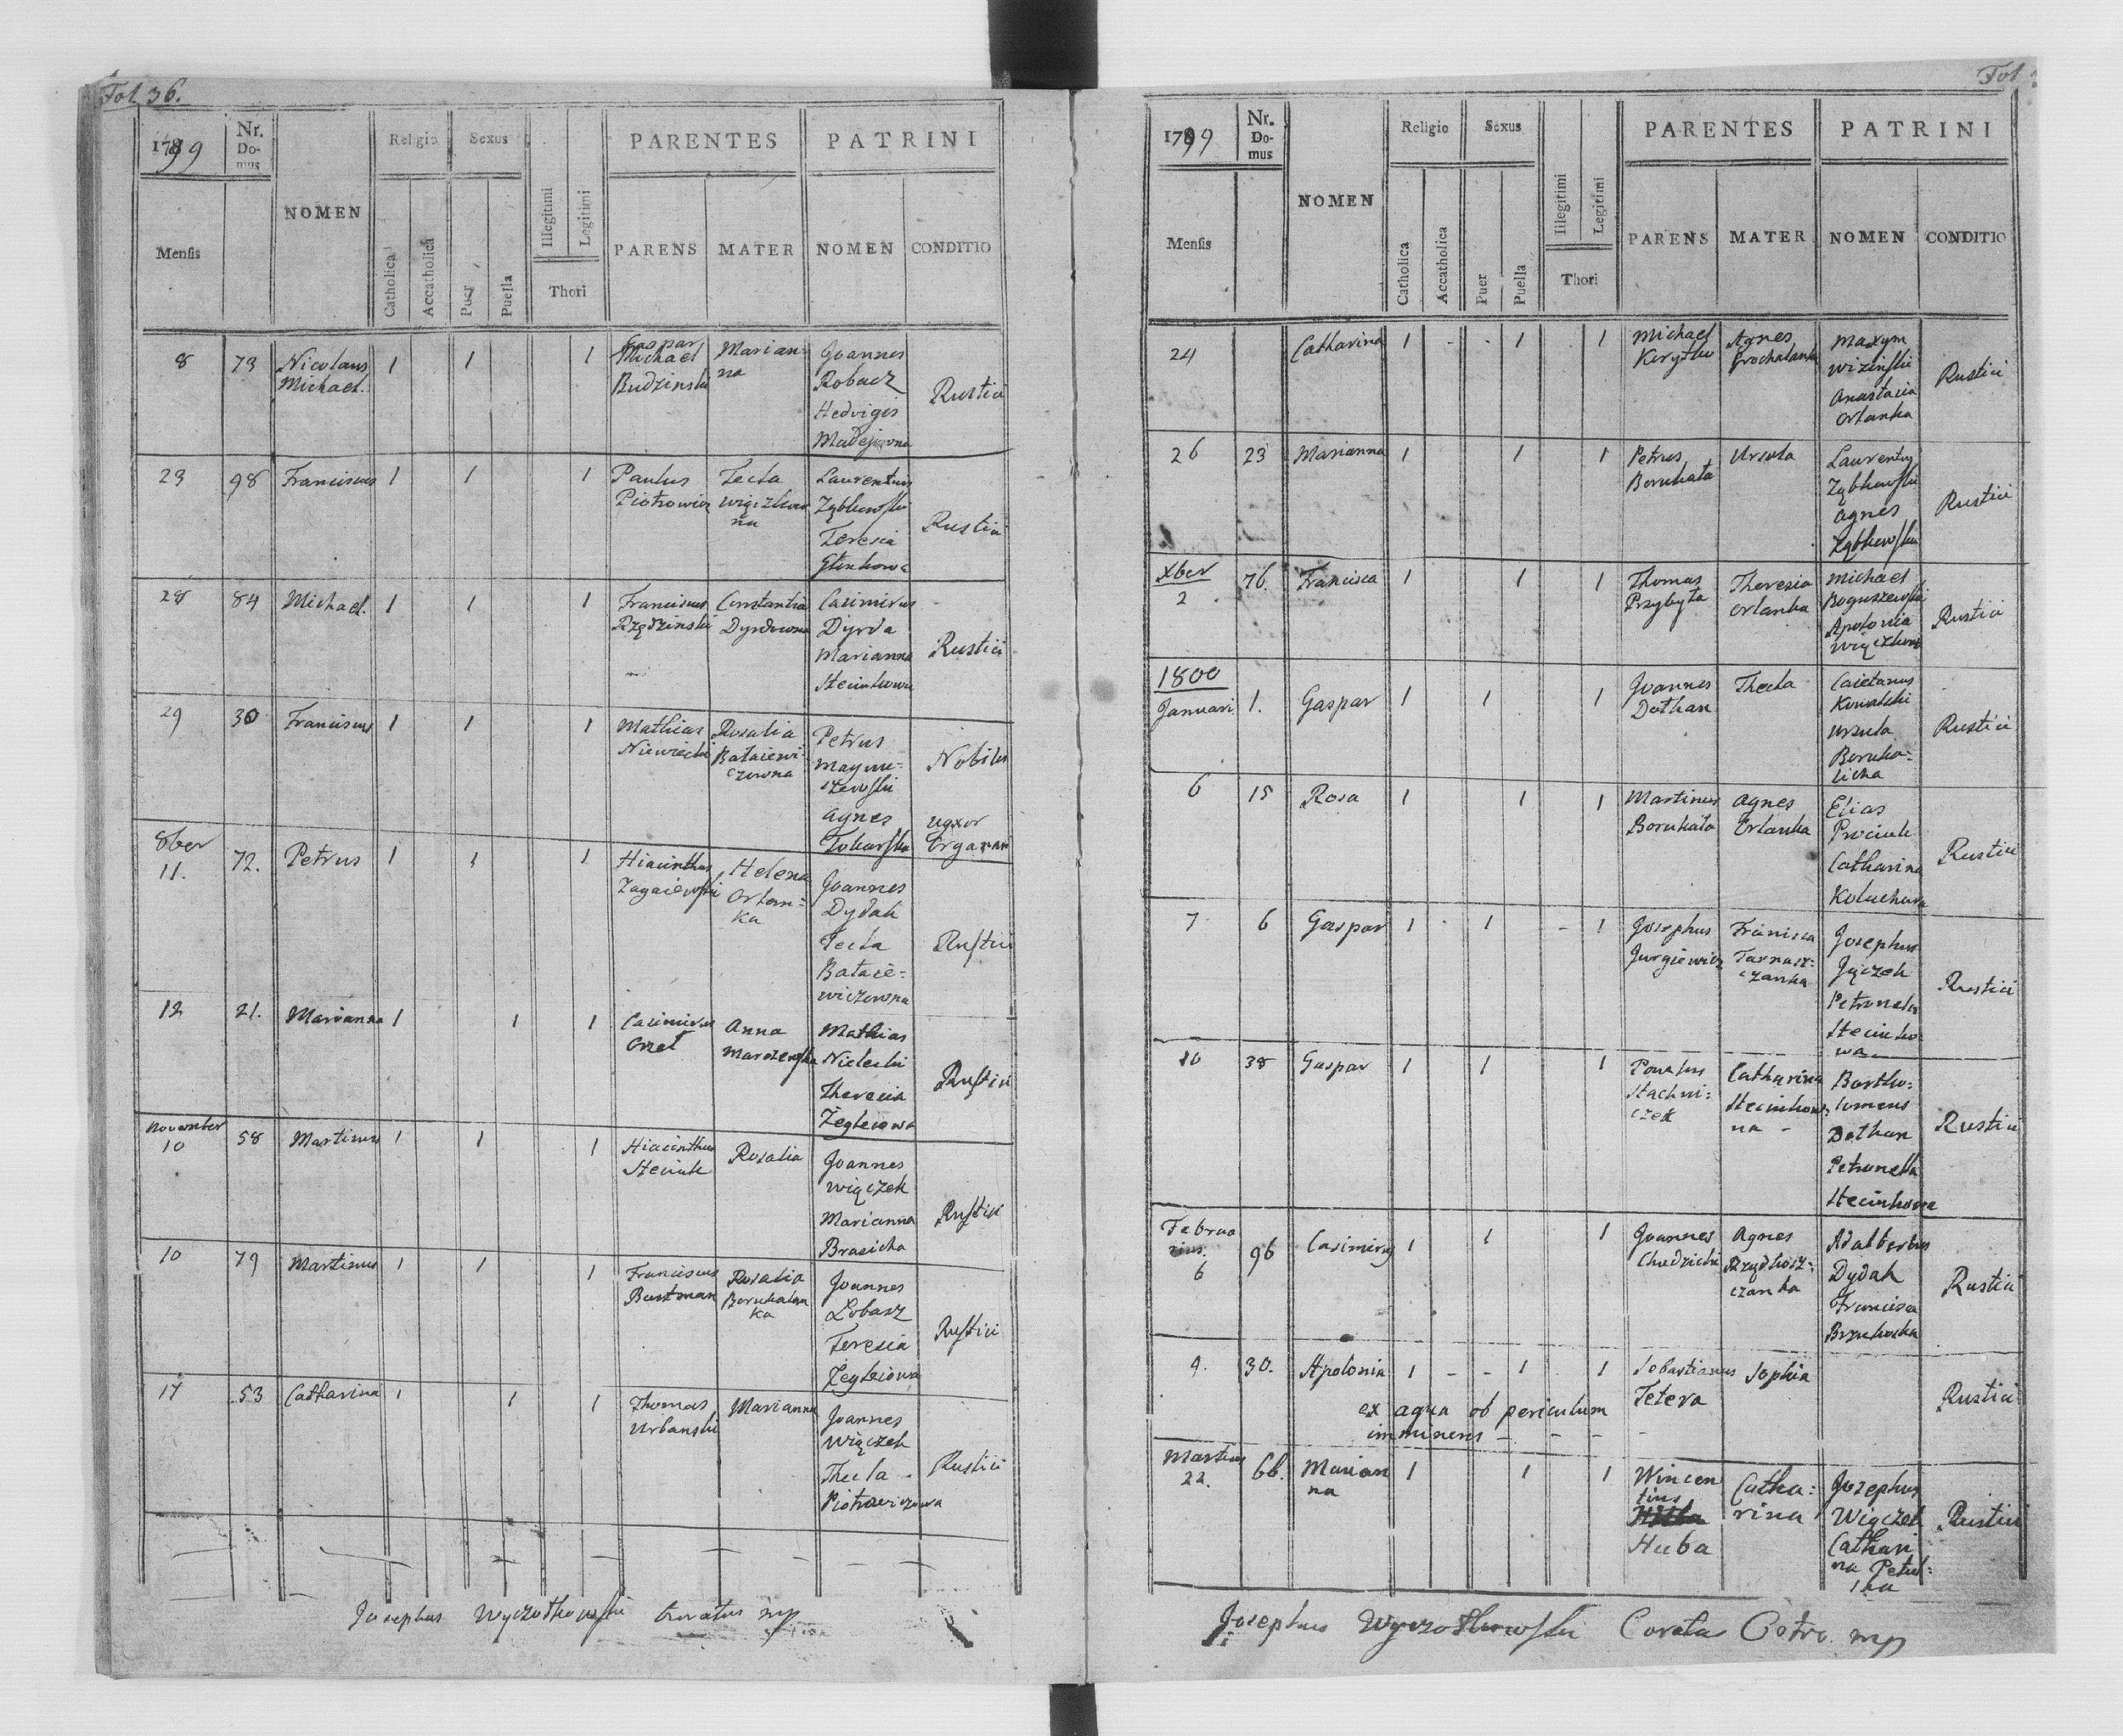 Fol 36.
1799
Nr. Domus
NOMEN
Religio
Sexus
PARENTES
PATRINI
Mensis
Catholica
Accatholica
Puer
Puella
Illegitimi
Legitimi
Thori
PARENS
MATER
NOMEN
CONDITIO
8 73 Nicolaus 1 1 1 Gaspar Marian= Joannes
Michael. Michael na Robacz
Budzinski Hedvigis Rustici
Madejowna
23 98 Franciscus 1 1 1 Paulus Tecla Laurentius
Piotrowicz Wiączkow Ząbkowski
na Teresia Rustici
28 84 Michael. 1 1 1 Franciscus Constantia Casimirus
Rzędzinski Dyrdowna Dyrda
Marianna Rustici
Steciukowa
29 30 Franciscus 1 1 1 Mathias Rosalia Petrus
Niewiecki Bataiewi Nobiles
czowna
Agnes Uxor
Tokarska Organar
8ber
11. 72. Petrus 1 1 1 Hiacinthus Helena Joannes
Zagaiewski Orlan= Dydak
ka Tecla Rustici
Bataie=
wiczowna
12 21. Marianna 1 1 1 Casimirus Anna Mathias
Orzel Marczewska Nielecki
Theresia Rustici
Zegleiowa
November
10 58 Martinus 1 1 1 Hiacinthus Rosalia Joannes
Steciuk Wiączek
Marianna Rustici
Brasicka
10 79 Martinus 1 1 1 Franciscus Rosalia Joannes
Bustman Borukalan Lobacz
ka Teresia Rustici
Zegleiowa
17 53 Catharina 1 1 1 Thomas Marianna Joannes
Urbanski Wiączek
Thecla Rustici
Piotrowiczowa
Josephus Wyczołkowski Curatus mp
Fol
1799
Nr. Domus
NOMEN
Religio
Sexus
PARENTES
PATRINI
Mensis
Catholica
Accatholica
Puer
Puella
Illegitimi
Legitimi
Thori
PARENS
MATER
NOMEN
CONDITIO
24 Catharina 1 - - 1 1 Michael Agnes Maxym
Kirytko Grochalanka Wizinski
Anastasia Rustici
Orlanka
26 23 Marianna 1 1 1 Petrus Ursula Laurentius
Borukata Ząbkowski
Agnes Rustici
Ząbkowska
Xber
2 76. Francisca 1 1 1 Thomas Theresia Michael
Przybyta Orlanka Boguszewski
Apolonia Rustici
Wiączkowa
1800
Januari 1. Gaspar 1 1 1 Joannes Thecla Caietanus
Dothan Kowalski
Urzula Rustici
Boruka=
licka
6 15 Rosa 1 1 1 Martinus Agnes Elias
Borukato Orlanka Prociuk
Catharina Rustici
7 6 Gaspar 1 1 - 1 Josephus Francisca Josephus
Jurgiewicz Tarnasz= Jączek
czanka Petronela Rustici
Steciuko
wa
10 38 Gaspar 1 1 1 Paulus Catharina Bartho=
Stachni= Steciukow lomeus
czek na - Dothan Rustici
Petronella
Steciukowa
Februa
rius.
6 96 Casimirus 1 1 1 Joannes Agnes Adalbertus
Chudzicki Rzędkosz= Dydak
czanka Francisca Rustici
Brzuhoska
9. 30. Apolonia 1 - - 1 1 Sebastianus Sophia
Tetera Rustici
ex aqua ob periculum
imminens - - - -
Martius
22. 66. Marian 1 1 1 Wincen Catha= Josephus
na tius rina Wiączek Rustici
Huba Cathari
na Petul=
ska
Josephus Wyczołkowski Coratus Ostro. mp